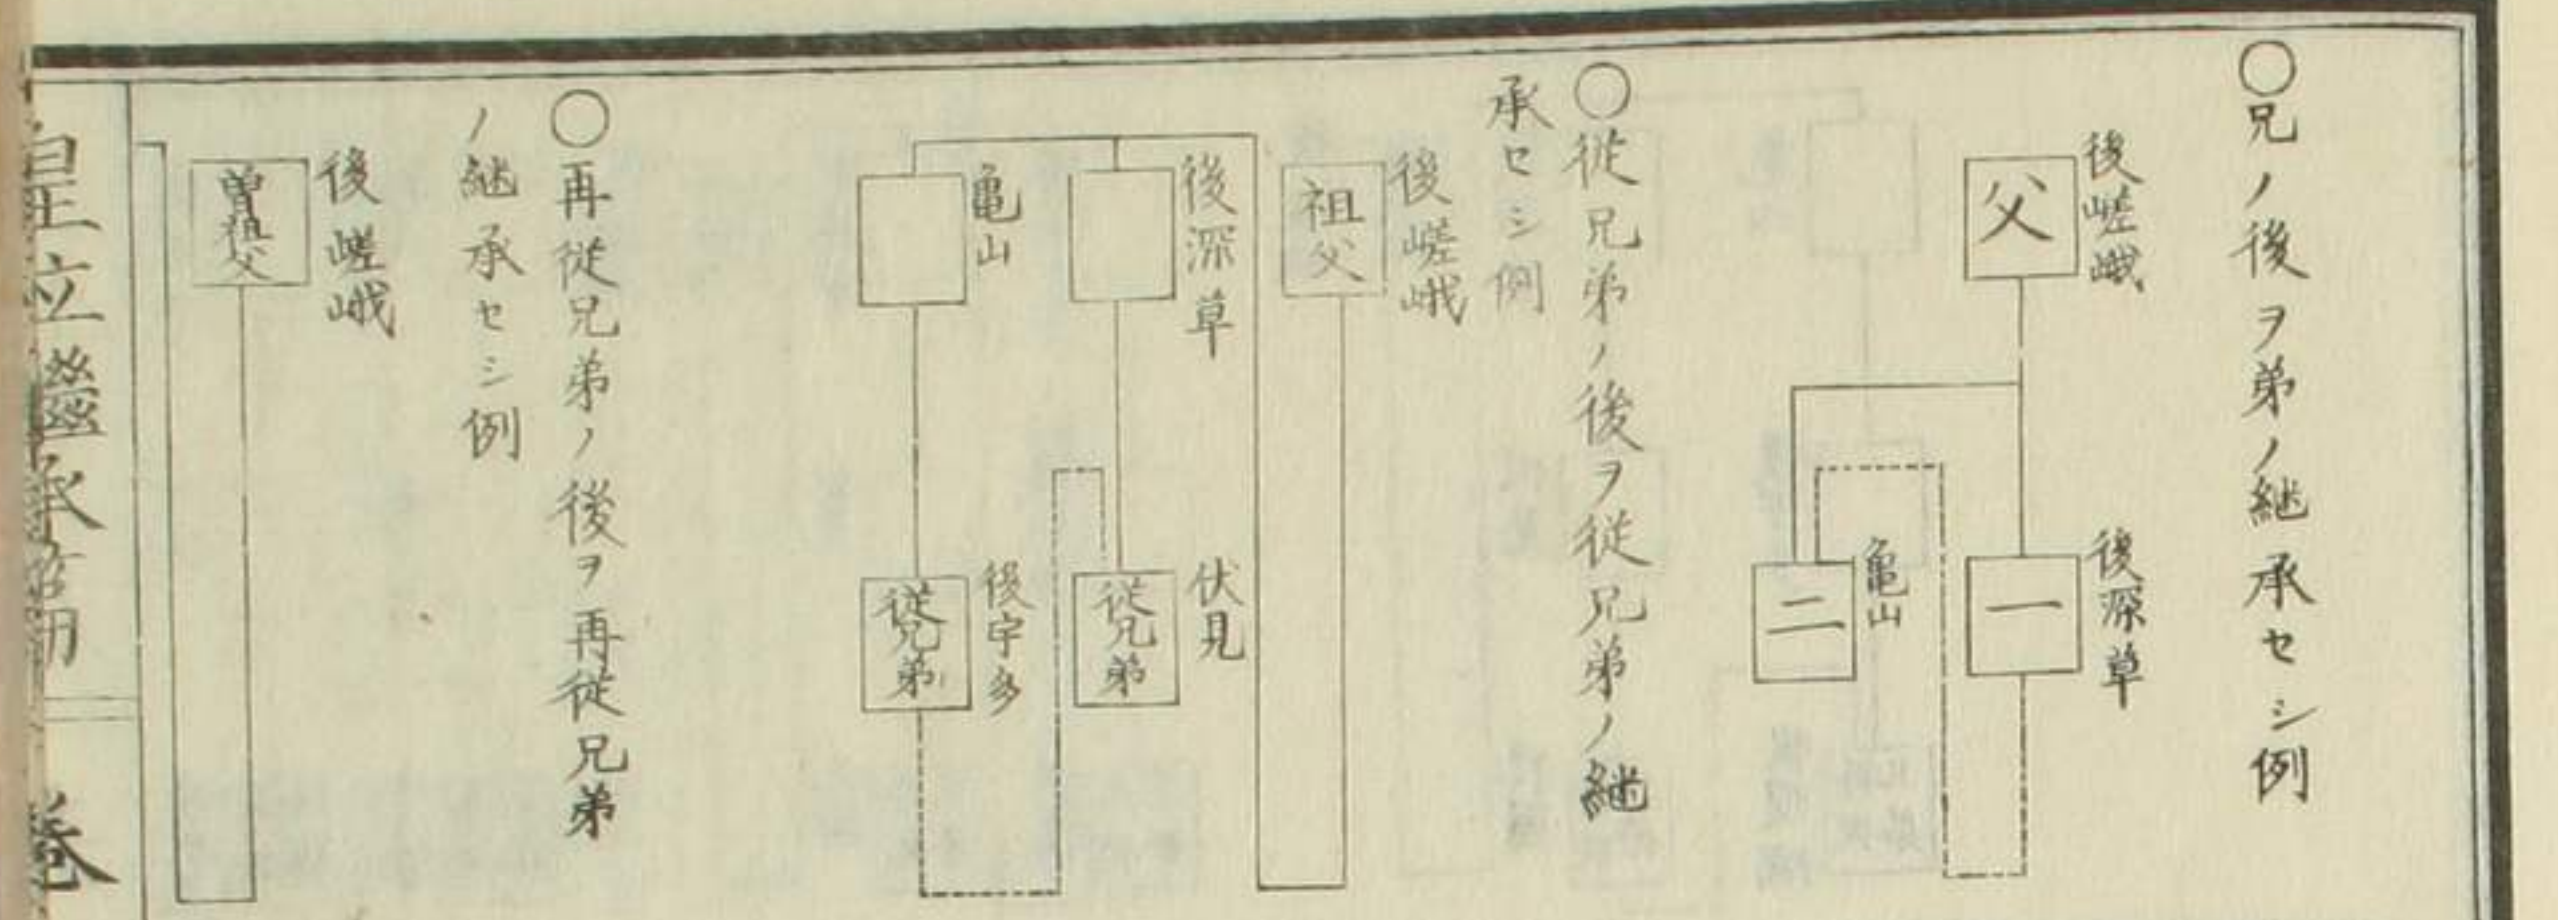 ○兄ノ後ヲ弟ノ継承セシ例
後嵯峨
父
後深草
一
亀山
二
○従兄弟ノ後ヲ従兄弟ノ継
承セシ例
後嵯峨
祖父
後深草
伏見
従兄弟
亀山
後宇多
従兄弟
○再従兄弟ノ後ヲ再従兄弟
ノ継承セシ例
後嵯峨
曽祖父
継承
巻